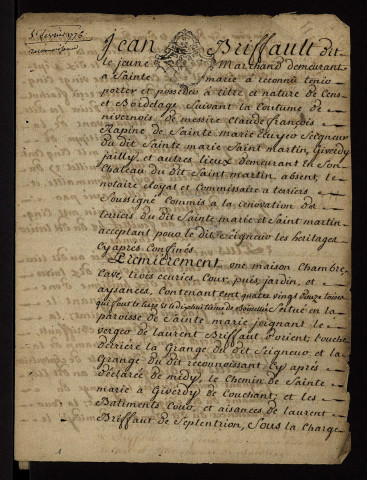 5e fevrier 1776
reconnoissance
Jean Briffault dit
le jeune Marchand demeurant
a Sainte marie a reconnu tenir
porter et posseder a titre et nature de Cens
et Bordelage Suivant la Coutume de
nivernois de messire Claude françois
Rapine de Sainte marie Ecuyer Seigneur
du dit Sainte marie Saint martin, Giverdy
jailly, et autres lieux demeurant en Son
Chateau du dit Saint martin, absent, le
notaire Royal et Commissaire a terriers
Soussigné Commis a la renovation des
terriers du dit Sainte marie et Saint martin
acceptant pour le dit Seigneur les heritages
Cyapres Confinés
Premierement une maison Chambre,
Cave, trois ecuries, Cour, puis, jardin, et
aysances, Contenant cent quatre vingt douze toises
qui font le tiers et le dixhuitieme de boisselée, Situé en la
paroisse de Sainte marie joignant le
verger de laurent Briffaut d'orient, l'ouche
derriere la Grange du dit Seigneur et la
Grange du dit reconnoissant Cy aprés
declarée de midy, le Chemin de Sainte
marie a Giverdy de Couchant; et les
Batiments Cour, et aisances de laurent
Briffaut de Septentrion, Sous la Charge